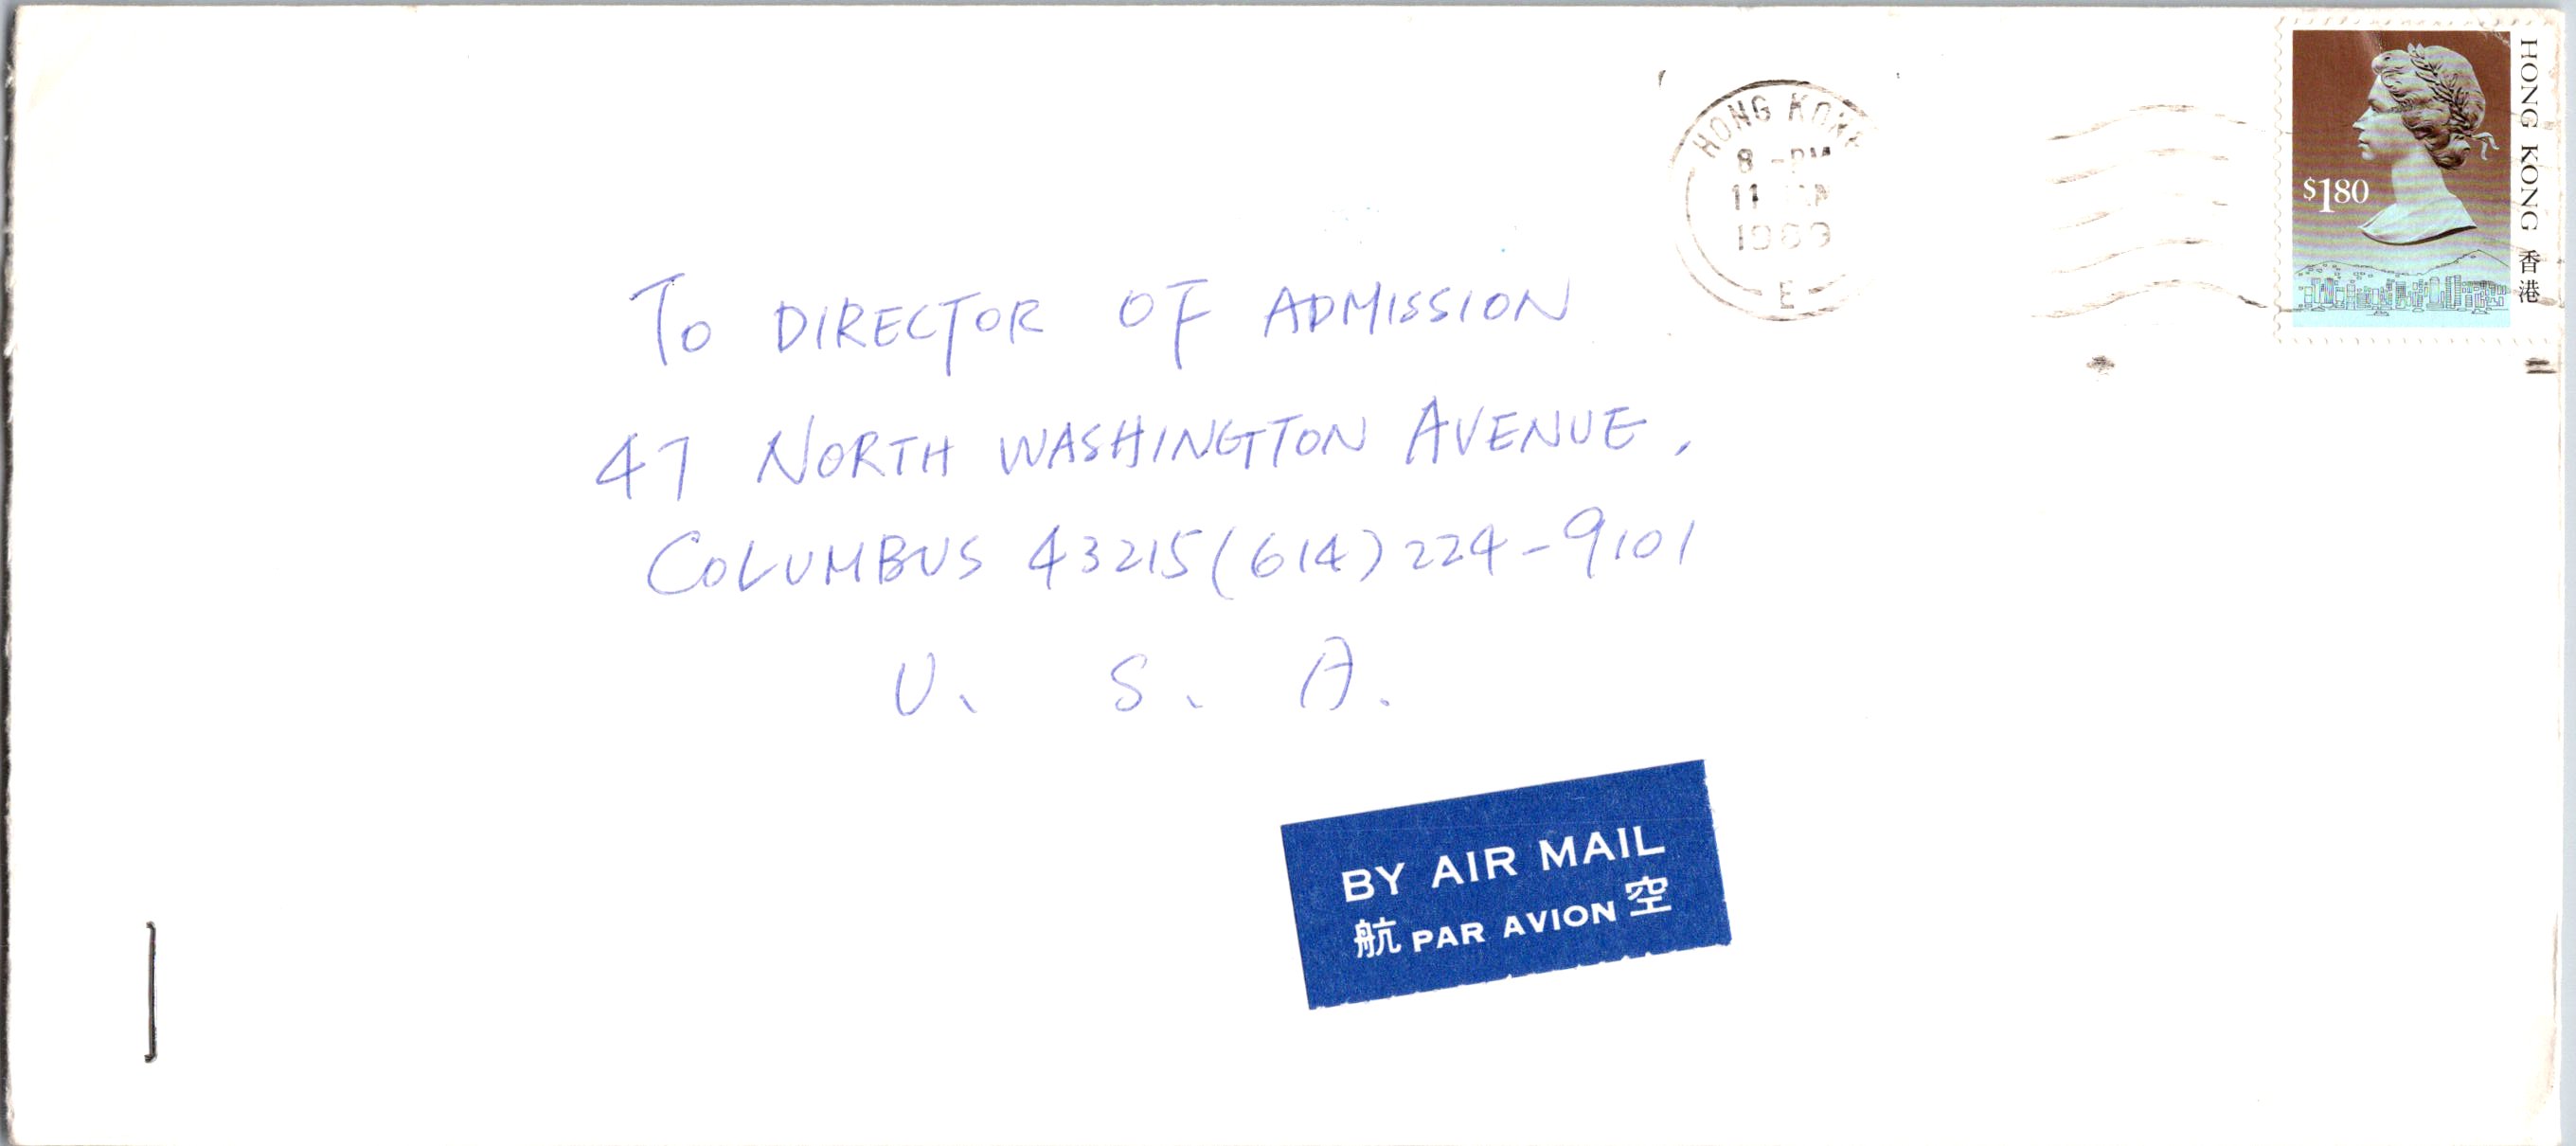 HONG KONG 香港
$1.80
HONG KONG
8 -PM
11
1989
E
TO DIRECTOR OF ADMISSION
47 NORTH WASHINGTON AVENUE,
COLUMBUS 43215 (614) 224-9101
U. S. A.
BY AIR MAIL
航 PAR AVION 空